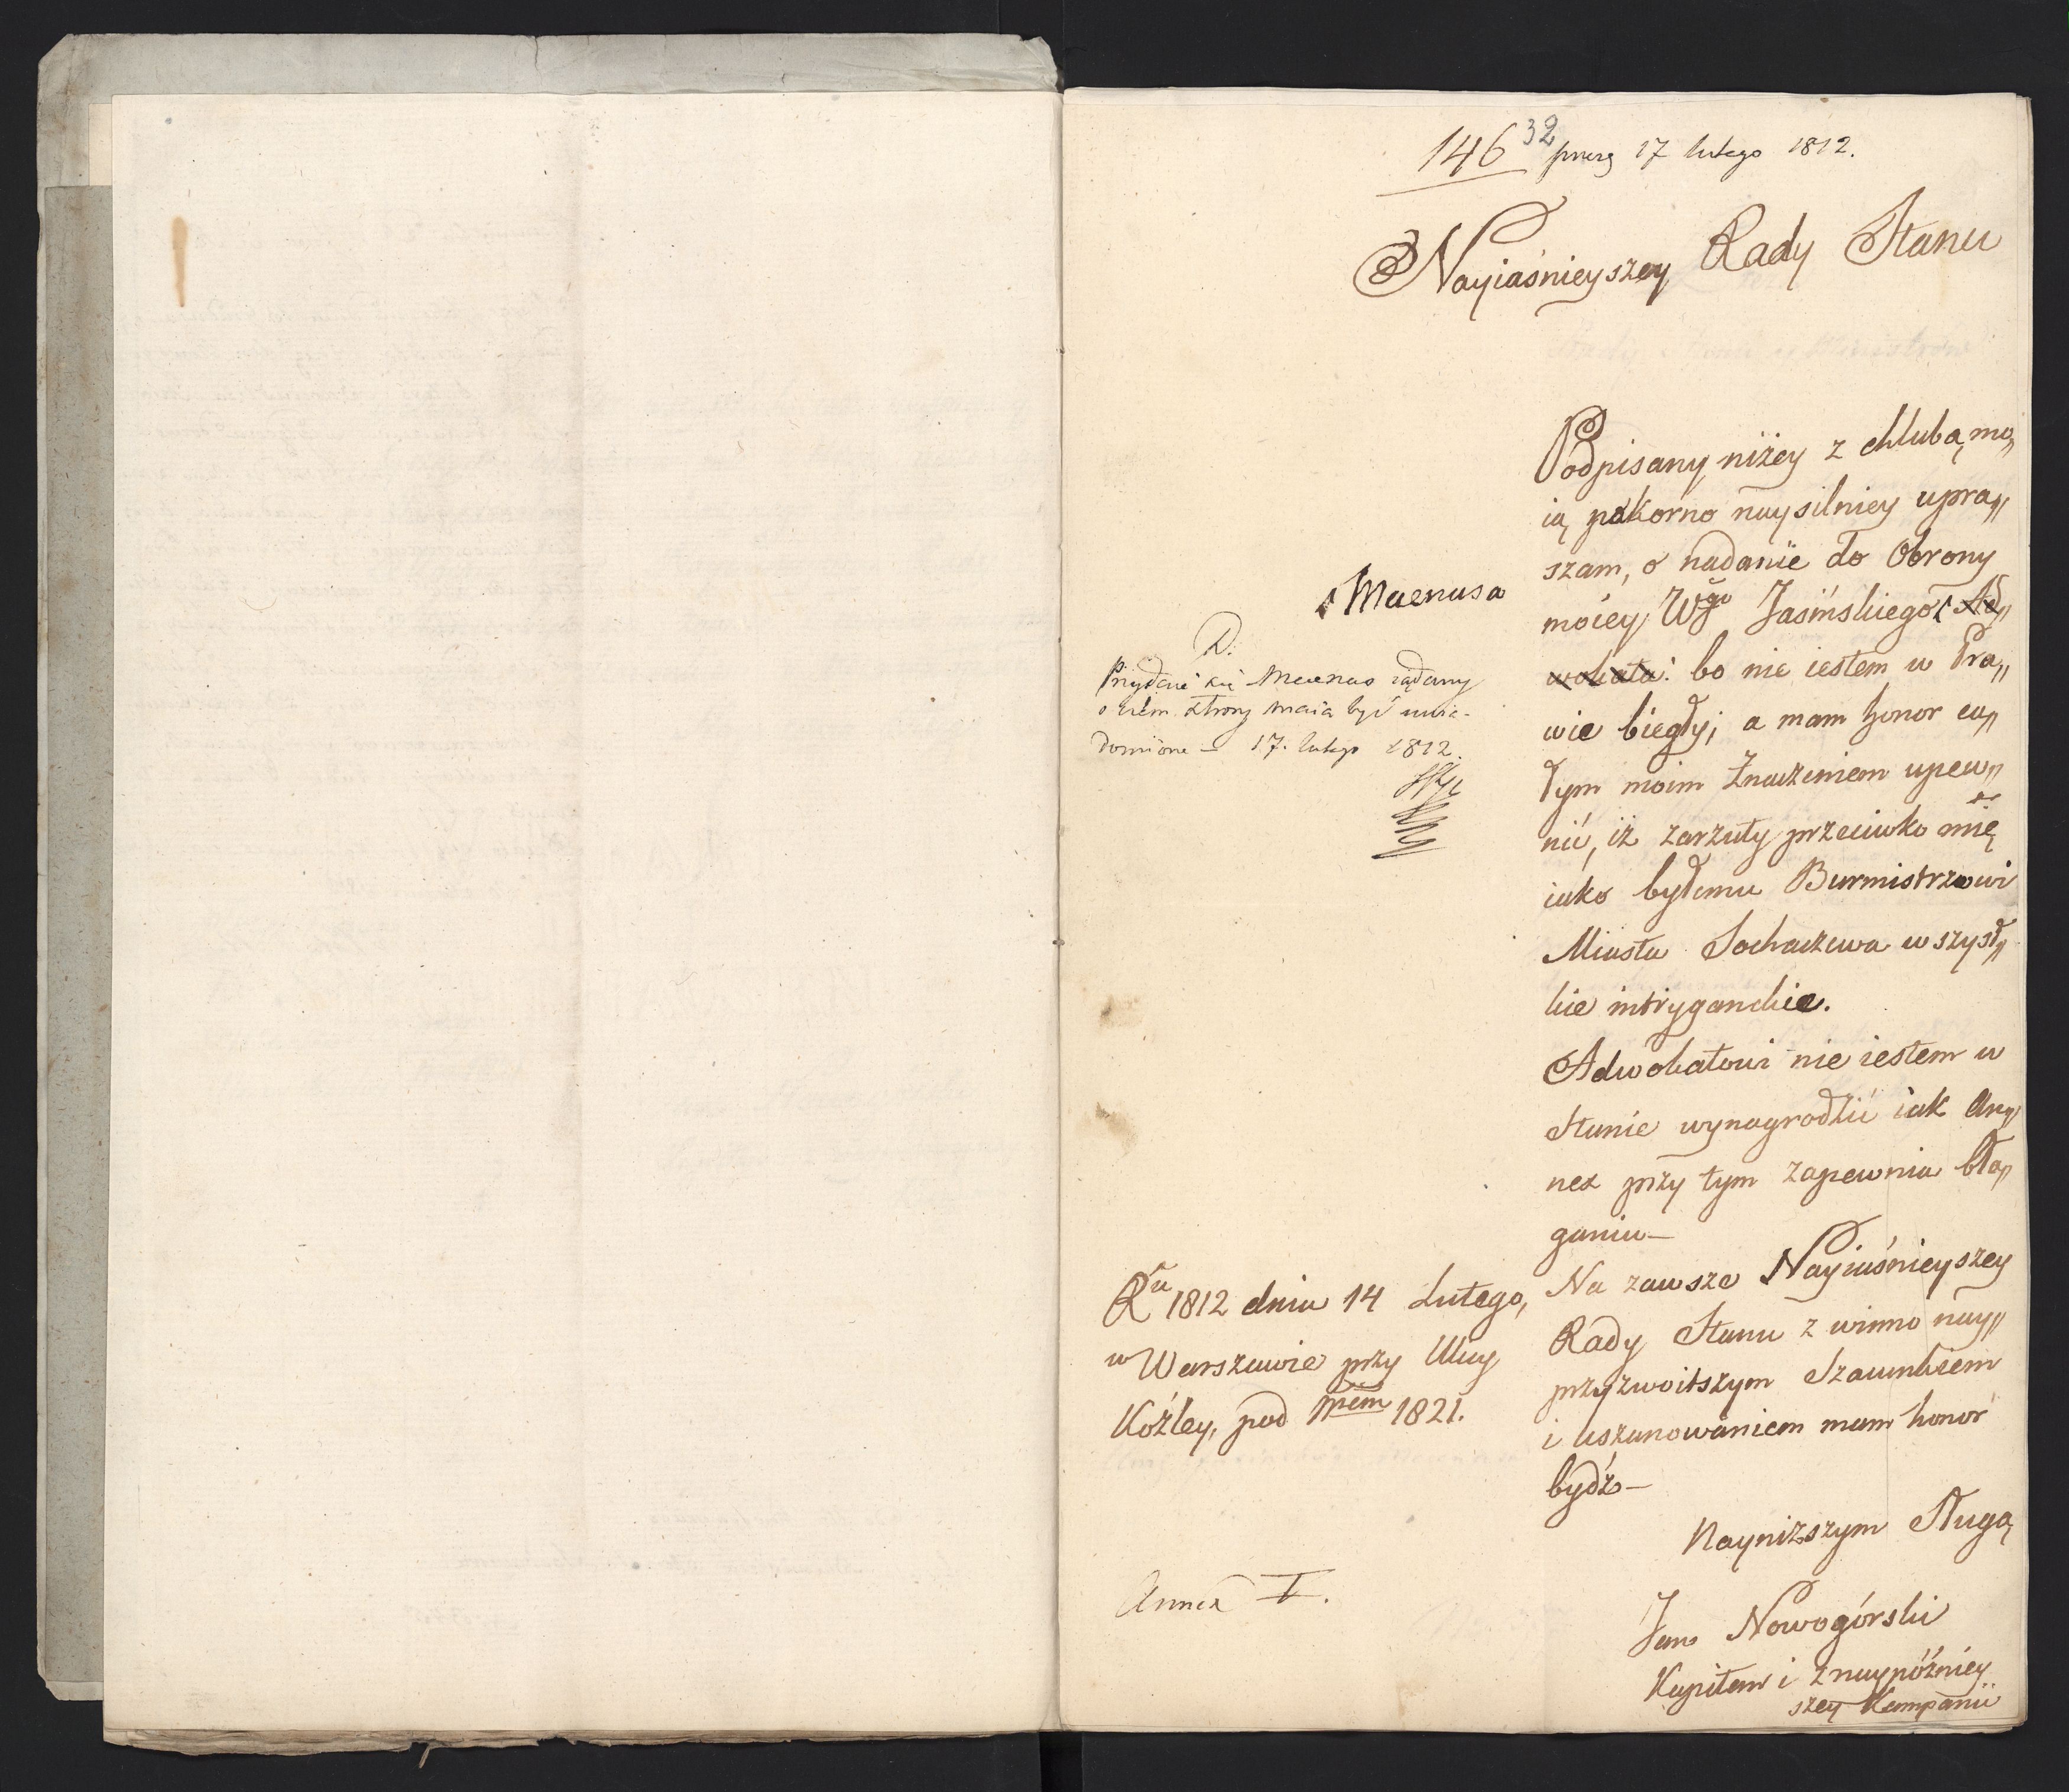 146 32 17 lutego 1812.
Nayiaśnieyszey Rady Stanu
Podpisany niżey z chlubą mo„
ią pokorno naysilniey upra„
szam, o nadanie do Obrony
moiey Wgo Jasińskiego Ad„
wokata: bo nie iestem w Pra„
wie biegły; a mam honor ca„
łym moim Znaczeniem upew„
nić, iż zarzuty przeciwko mię
iako byłemu Burmistrzowi
Miasta Sochaczewa wszyst„
kie intryganckie.
Adwokatowi nie iestem w
Stanie wynagrodzić iak An„
nex przy tym zapewnia bła„
ganiu—
Na zawsze Nayiaśnieyszey
Rady Stanu z winno nay„
przyzwoitszym Szacunkiem
i uszanowaniem mam honor
bydź—
Nayniższym Sługą
Jan Nowogórski
Kapitan i z naypóźniey
szey Kampanii
Mecenasa
D.
Przydaie się Mecenas żądany
o czém strony maią być uwia-
domione — 17. lutego 1812.
Ru 1812 dnia 14 Lutego,
w Warszawie przy Ulicy
Koźley, pod Nrem 1821.
Annex I.